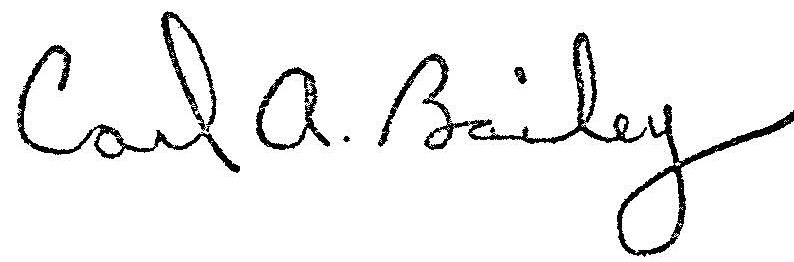 Carl A. Bailey